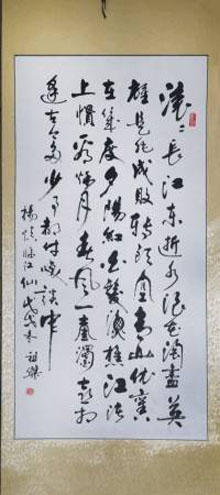 滚〻长江东逝水浪花淘尽英
雄是非成败转头空青山依旧
在几度夕阳红白发渔樵江渚
上惯看秋月春风一壶浊喜相
逢古今多少事都付笑谈中
杨慎临江仙戊戌冬祖荣